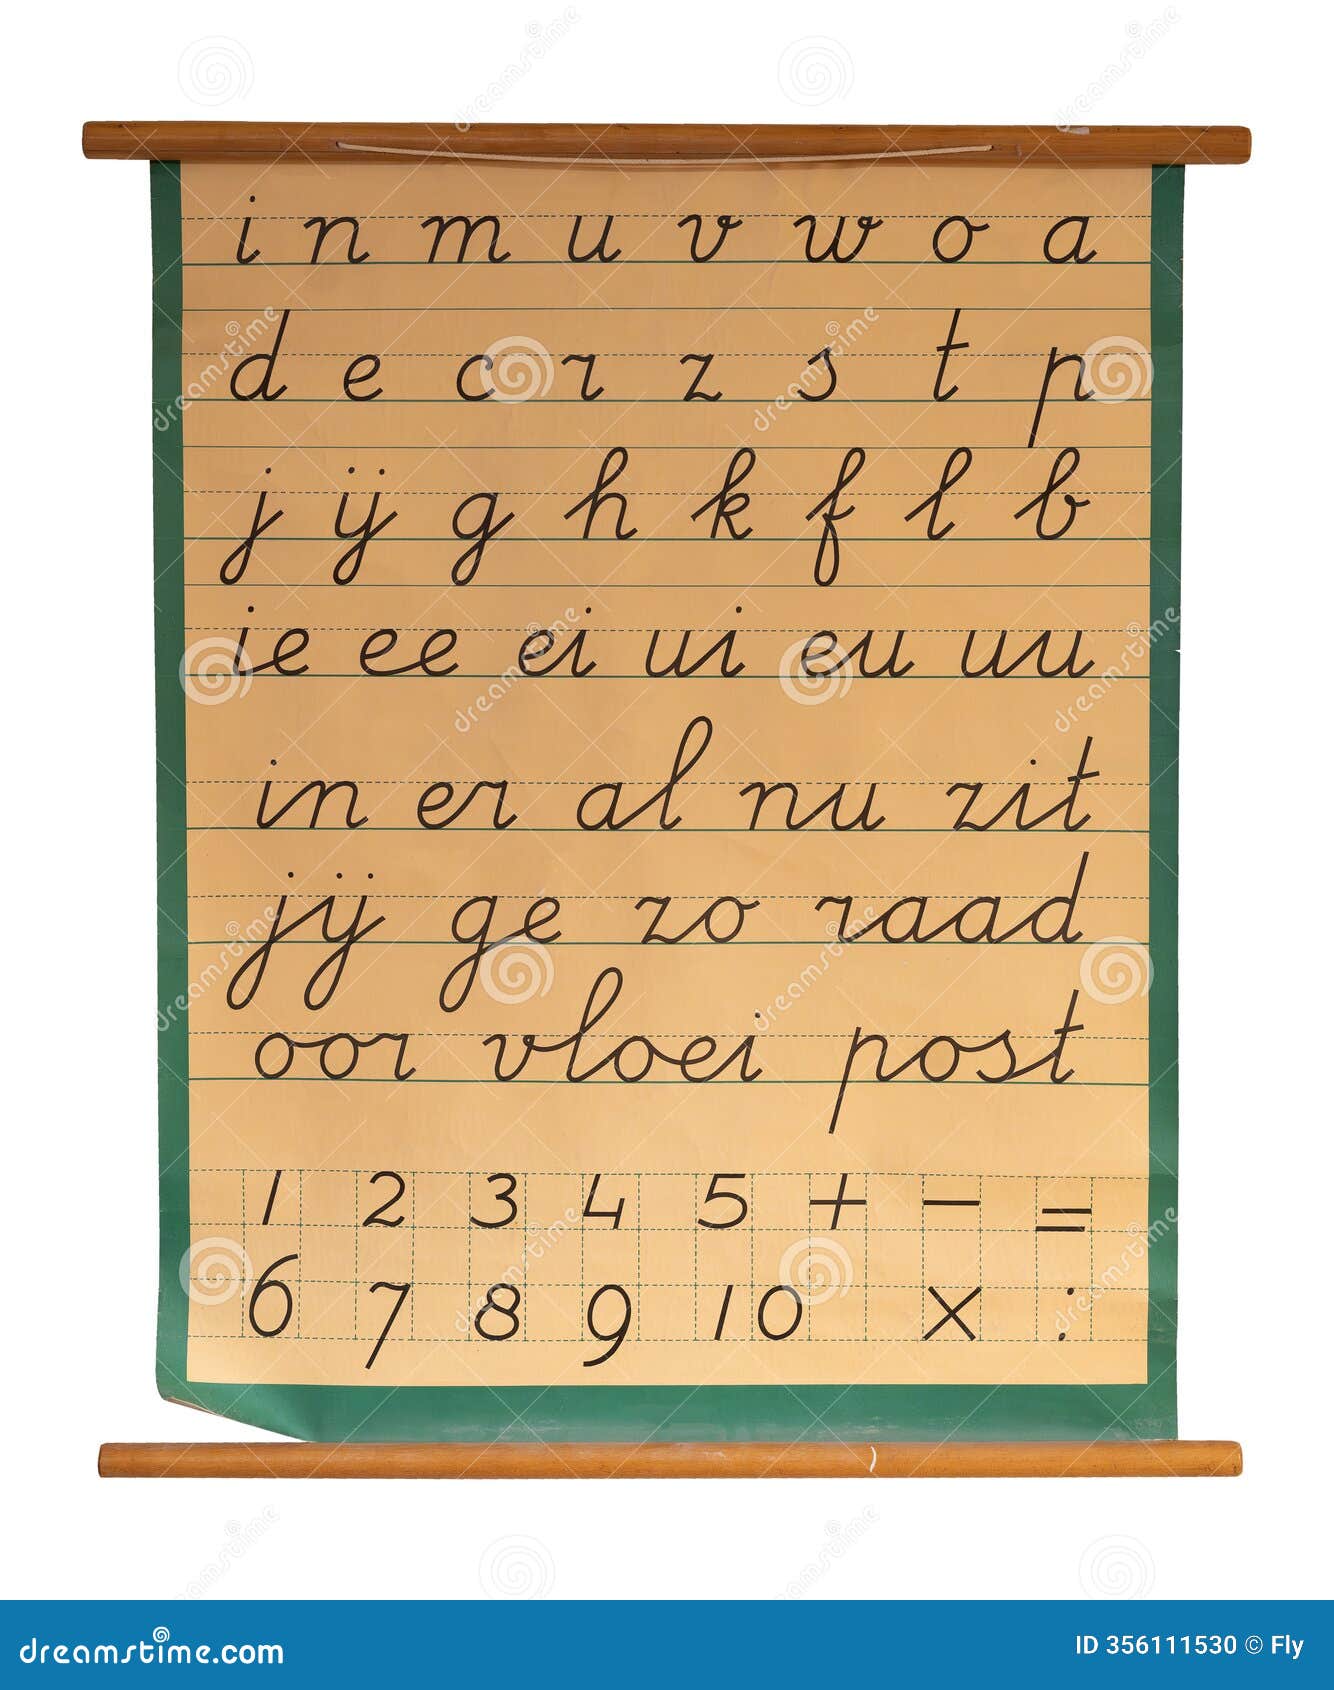 i n m u v w o a
d e c r z s t p
j ij g h k f l b
ie ee ei ui eu uu
in er al nu zit
jij ge zo raad
oor vloei post
1 2 3 4 5 + − =
6 7 8 9 10 x :
dreamstime.com
ID 356111530 © Fly